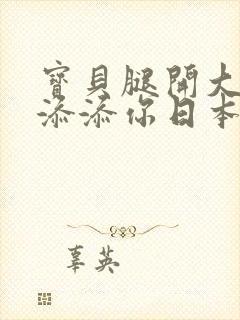 寶貝腿開大
添添你日本
辜英